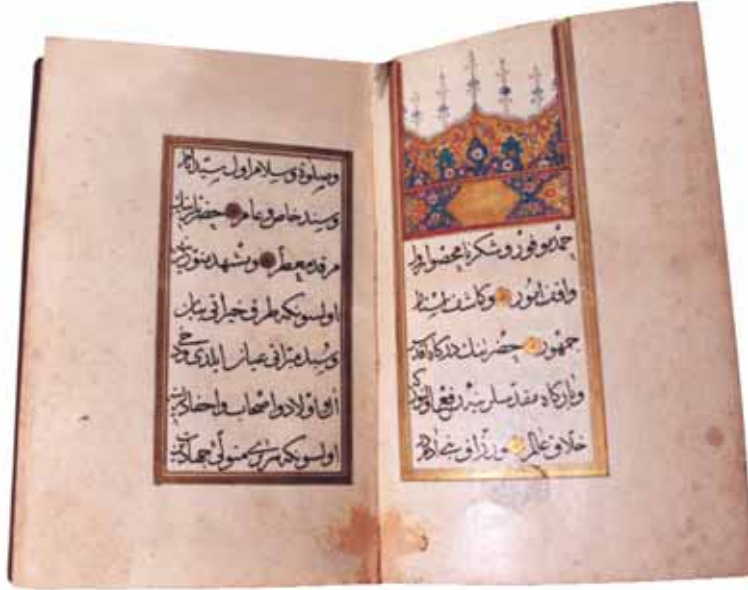 حمد موفور و شكر نامحصور اول
واقف امور و كاشف
جمهور حضرتنك درگاه
و بارگاه مقدسلرينه رفع اولنور كه
خلاق عالم و رزاق بنى آدم در
و صلوة و سلام اول سيد انام
و سند خاص و عام حضرتلرينك
مرقد معطر و مشهد منورلرينه
اولسونكه طرق خيراتى بيان
و سبيل مبراتى عيان ايلدى و دخى
آل و اولاد و اصحاب و احفادلرينه
اولسونكه هر برى متولئ جهات